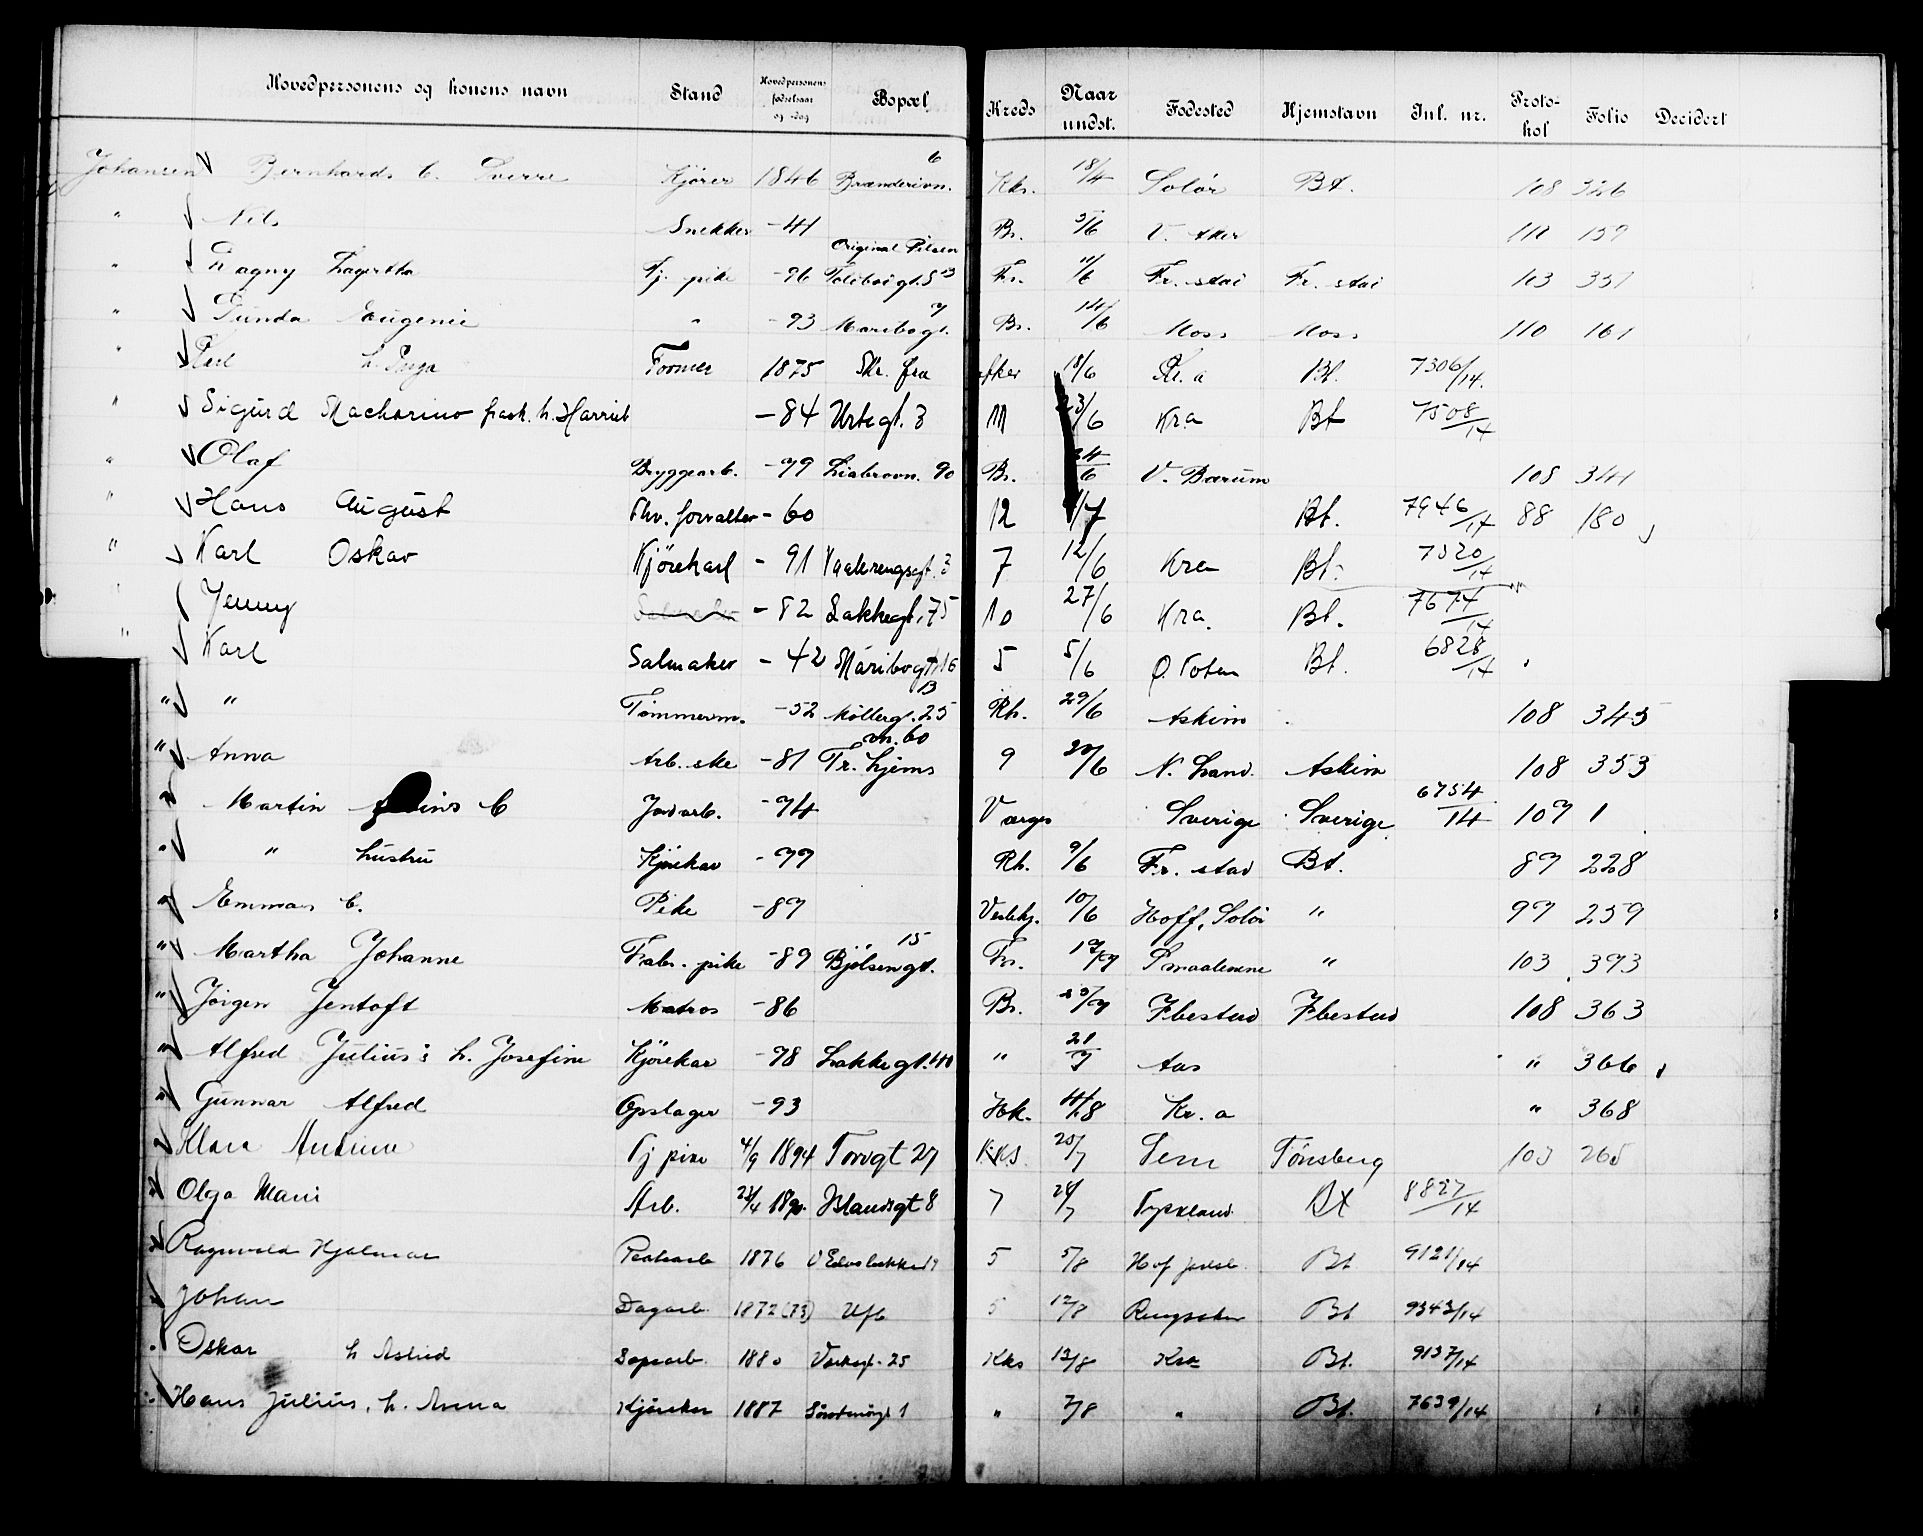 Hovedpersonens og konens navn Stand Hovedpersonens fødselsaar og -dag Bopæl Kreds Naar undst. Fødested Hjemstavn Inl. nr. Protokol Folio Decidert
Johansen Bernhard C. Sverre Kjører 1846 Brænderivn. 6 Kks. 18/4 Solør Bt. 108 326
" Nils Snekker -41 Br. 5/6 V. Aker 110 159
" Dagny Lagertha Tj. pike -96 Original Pilsen Toldbodgt. 13 Fr. 11/6 Fr. stad Fr. stad 103 351
" Gunda Eugenie " -93 Maribogt. 7 Br. 14/6 Moss Moss 110 161
" Karl h. Inga Former 1875 Kr. fra Aker 18/6 Kr. a Bt. 7306/14.
" Sigurd Macharius frask. h. Harriet -84 Urtegt. 3 M 23/6 Kra Bt 7508/14
" Olaf Bryggearb. -79 Liabrovn. 90 Br. 24/6 V. Bærum 108 341
" Hans August Thv. forvalter - 60 12 1/7 Bt. 7946/14 88 180
" Karl Oskar Kjørekarl - 91 Vaalerengsgt. 3 7 12/6 Kra Bt. 7320/14
" Jenny - 82 Lakkegt. 75 10 27/6 Kra. Bt. 7674/14
" Karl Salmaker - 42 Maribogt. 16 5 5/6 Ø. Toten Bt. 6828/14
" " Tømmerm. -52 Møllergt. 25 B Rh. 29/6 Askim 108 345
" Anna Arb. ske -81 Fr. hjems vn. 60 9 20/6 N. Land. Askim 108 353
" Martin C Jordarb. -74 Vargs Sverige Sverige 6754/14 107 1
" " Kjørekar -77 Rh. 9/6 Fr. stad Bt. 87 228
" Emma C. Pike -87 Vestkj. 10/6 Hoff, Solør " 97 259
" Martha Johanne Fabr. pike -89 Bjølsengt. 15 Fr. 17/7 Smaalenene " 103 393
" Jørgen Jentoft Matros -86 Br. 20/7 Ibestad Ibestad 108 363
" Alfred Julius: h. Josefine Kjørekar -78 Lakkegt. 40 " 21/7 Aas " 366
" Gunnar Alfred Opslager -93 Hk. 4/8 Kr. a " 368
" Klara Antine Tj pike 4/9 1894 Torvgt 27 KKS 20/7 Sem Tønsberg 103 265
" Olga Marie Arb. 23/4 1890. Islandsgt 8 7 24/7 Tyskland Bt 8827/14
" Ragnvald Hjalmar 1876 5 5/8 Hof Bt 9121/14
" Johan Dagarb. 1872 (73) Ufb 5 12/8 Ringsaker Bt 9343/14
" Oskar h Astrid 1880 25 Kks 12/8 Kra Bt. 9137/14
" Hans Julius, h. Anna Kjørekar 1887 1 " 7/8 " Bt. 7639/14